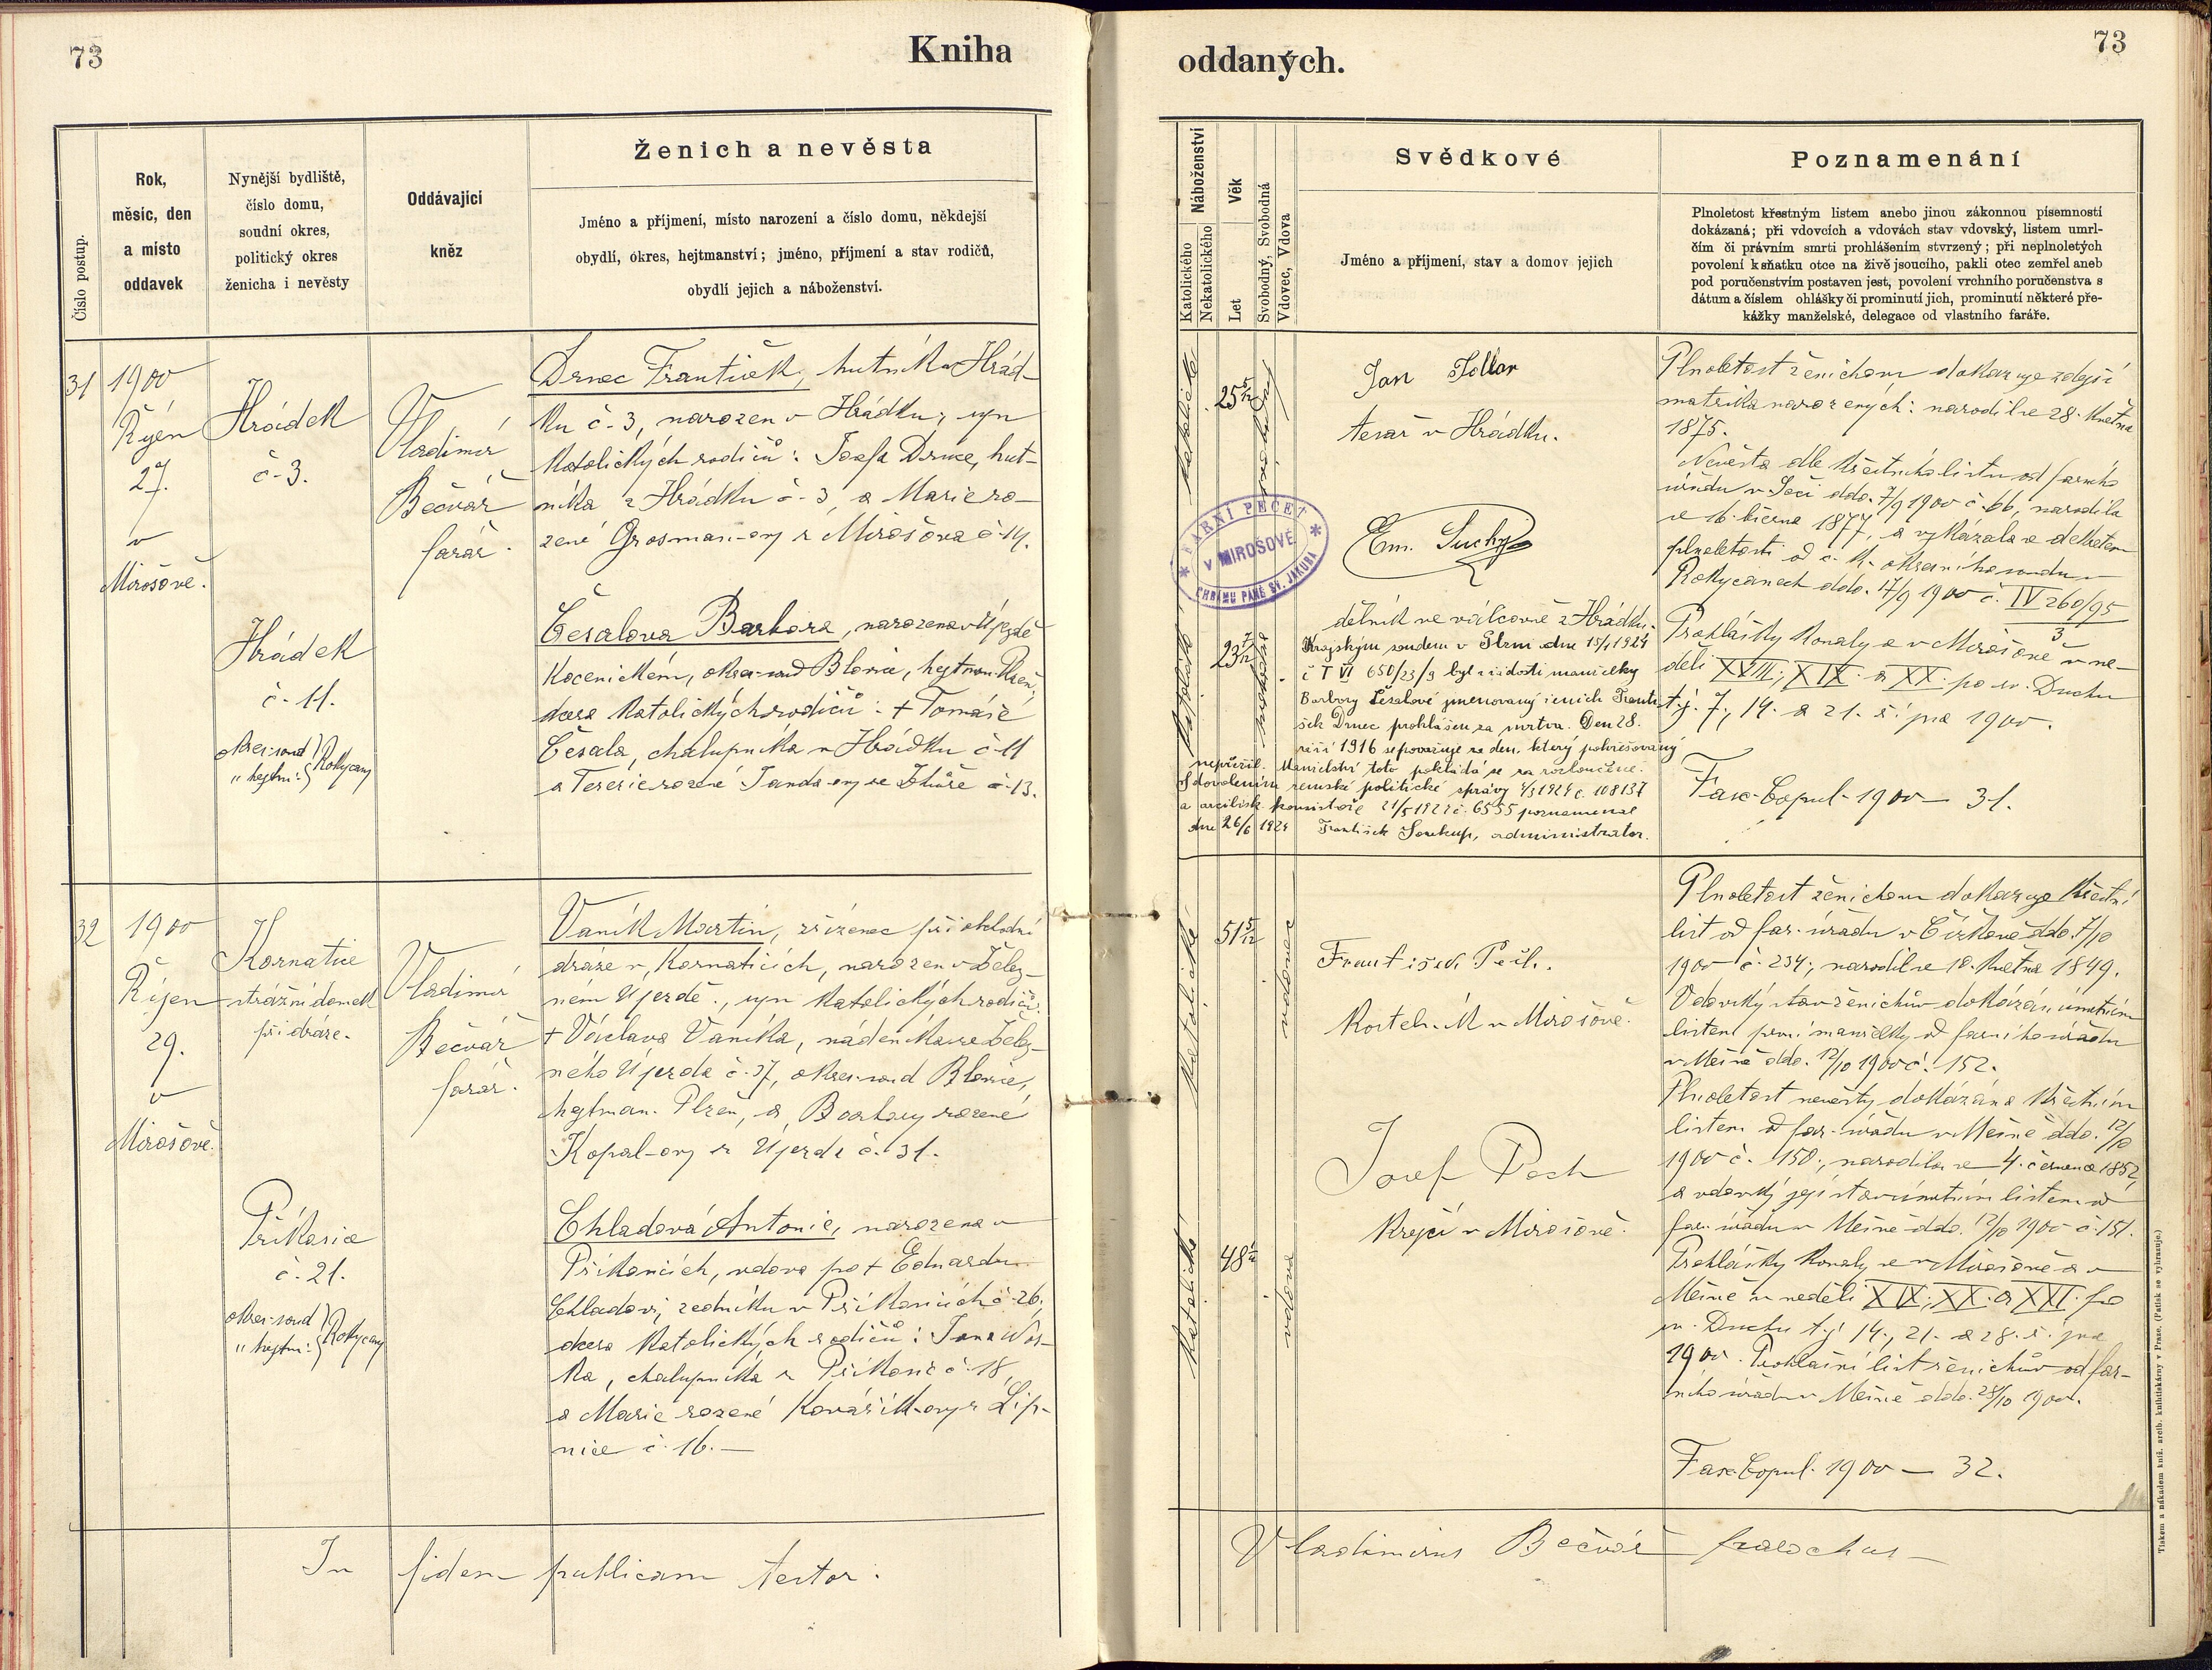 73
Kniha
oddaných.
73
Číslo postup.
Rok,
měsíc, den
a místo
oddavek
Nynější bydliště,
číslo domu,
soudní okres,
politický okres
ženicha i nevěsty
Oddávající
kněz
Ženich a nevěsta
Jméno a příjmení, místo narození a číslo domu, někdejší
obydlí, okres, hejtmanství; jméno, příjmení a stav rodičů,
obydlí jejich a náboženství.
Náboženství
Katolického
Nekatolického
Věk
Let
Svobodný, Svobodná
Vdovec, Vdova
Svědkové
Jméno a příjmení, stav a domov jejich
Poznamenání
Plnoletost křestným listem anebo jinou zákonnou písemností
dokázaná; při vdovcích a vdovách stav vdovský, listem umrl-
čím či právním smrti prohlášením stvrzený; při neplnoletých
povolení k sňatku otce na živě jsoucího, pakli otec zemřel aneb
pod poručenstvím postaven jest, povolení vrchního poručenstva s
dátum a číslem ohlášky či prominutí jich, prominutí některé pře-
kážky manželské, delegace od vlastního faráře.
31
1900
Říjen
27.
v
Mirošově.
Hrádek
č. 3.
Vladimír
Bečvář
farář.
Drnec František, hutník v Hrád-
ku č. 3, narozen v Hrádku, syn
katolických rodičů: Josefa Drnce, hut-
níka z Hrádku č. 3 a Marie ro-
zené Grosman-ovy z Mirošova č. 14.
Hrádek
č. 11.
okres. soud } Rokycany
" hejtm. }
Česalova Barbora, narozena v Újezdě
Kocenickém, okres. soud Blovic, hejtman. Plzeň,
dcera katolických rodičů: + Tomáše
Česala, chalupníka v Hrádku č. 11
a Terezie rozené Janda-ovy ze č. 13.
katolické
25 5/12
svobodný
Jan Tollar
tesař v Hrádku.
Em. Suchý
dělník ve válcovně z Hrádku.
FARNÍ PEČEŤ
V MIROŠOVĚ
CHRÁMU PANĚ SV. JAKUBA
katolické
23 7/12
svobodná
Krajským soudem v Plzni dne 15/1 1924
č T VI 650/23/9 byl k žádosti manželky
Barbory Česalové jmenovaný ženich Franti-
šek Drnec prohlášen za mrtva. Den 28.
září 1916 se považuje za den, který pohřešovaný
nepřežil. Manželství toto pokládá se za rozloučené.
S dovolením zemské politické správy 4/3 1924 č. 108137
a arcibisk. konsistoře 21/5 1924 č. 6555 poznamenal
dne 26/6 1924 František Soukup, administrator.
Plnoletost ženichovu dokazuje zdejší
matrika narozených: narodil se 28. května
1875.
Nevěsta dle křestního listu od farního
úřadu v ddo. 7/9 1900 č. 66, narodila
se 16. března 1877, a vykázala se dekretem
plnoletosti od c. k. okresního soudu v
Rokycanech ddo. 17/9 1900 č. IV 260/95
3
Prohlášky konaly se v Mirošově v ne-
děli XVIII., XIX. a XX. po sv. Duchu
t. j. 7., 14. a 21. října 1900.
Fasc. Copul. 1900 — 31.
32
1900
Říjen
29.
v
Mirošově.
Kornatice
strážní domek
při dráze.
Vladimír
Bečvář
farář.
Vaník Martin, zřízenec při obchodní
dráze v Kornaticích, narozen v Želez-
ném Újezdě, syn katolických rodičů:
+ Václava Vaníka, nádeníka ze Želez-
ného Újezda č. 37, okres. soud Blovic,
hejtman. Plzeň, a Barbory rozené
Kopal-ovy z Újezda č. 31.
Příkosice
č. 21.
okres. soud } Rokycany
" hejtm. }
Chladová Antonie, narozena v
Příkosicích, vdova po + Eduardu
Chladovi, zedníku v Příkosicích č. 26,
dcera katolických rodičů: Jana Vos-
ka, chalupníka z Příkosic č. 18,
a Marie rozené Kovářík-ovy z Lip-
nice č. 16. —
katolické
51 5/12
vdovec
František Pech.
Kostelník v Mirošově.
katolické
48
vdova
Josef Pech
Krejčí v Mirošově.
Plnoletost ženichovu dokazuje křestní
list od far. úřadu v Čížkově ddo. 7/10
1900 č. 234; narodil se 18. května 1849.
Vdovský stav ženichův dokázán úmrtním
listem první manželky od farního úřadu
v Mešně ddo. 12/10 1900 č. 152.
Plnoletost nevěsty dokázána křestním
listem od far. úřadu v Mešně ddo. 12/10
1900 č. 150; narodila se 4. července 1852,
a vdovský její stav úmrtním listem od
far. úřadu v Mešně ddo. 12/10 1900 č. 151.
Prohlášky konaly se v Mirošově a v
Mešně v neděli XIX., XX. a XXI. po
sv. Duchu t. j. 14., 21. a 28. října
1900. Prohlašní list ženichův od far-
ního úřadu v Mešně ddo. 28/10 1900.
Fasc. Copul. 1900 — 32.
In fidem publicam testor.
Vladimirus Bečvář parochus
Tiskem a nákadem kníž. arcib. knihtiskárny v Praze. (Patisk se vyhrazuje.)